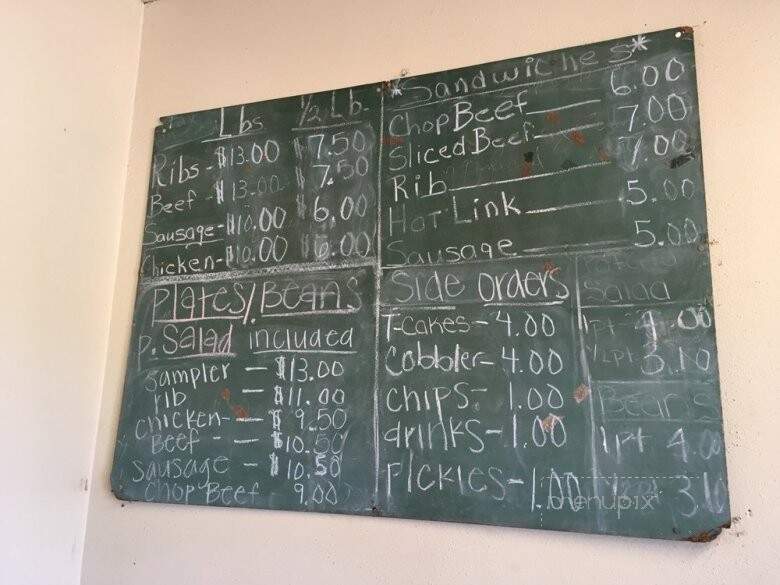 Lbs 1/2 Lb.
Ribs - $13.00 $7.50
Beef - $13.00 7.50
Sausage - $10.00 6.00
Chicken - $10.00 $6.00
Plates/Beans
P. Salad included
Sampler — $13.00
rib — $11.00
chicken — $9.50
Beef — $10.50
Sausage — $10.50
Chop Beef 9.00
*Sandwiches*
Chop Beef — 6.00
Sliced Beef — 7.00
Rib — 7.00
Hot Link — 5.00
Sausage — 5.00
Side orders
T-cakes - 4.00
Cobbler - 4.00
chips - 1.00
drinks - 1.00
Pickles - 1.00
Salad
1pt 4.00
1/2pt 3.10
Beans
1pt 4.00
3.10
menupix